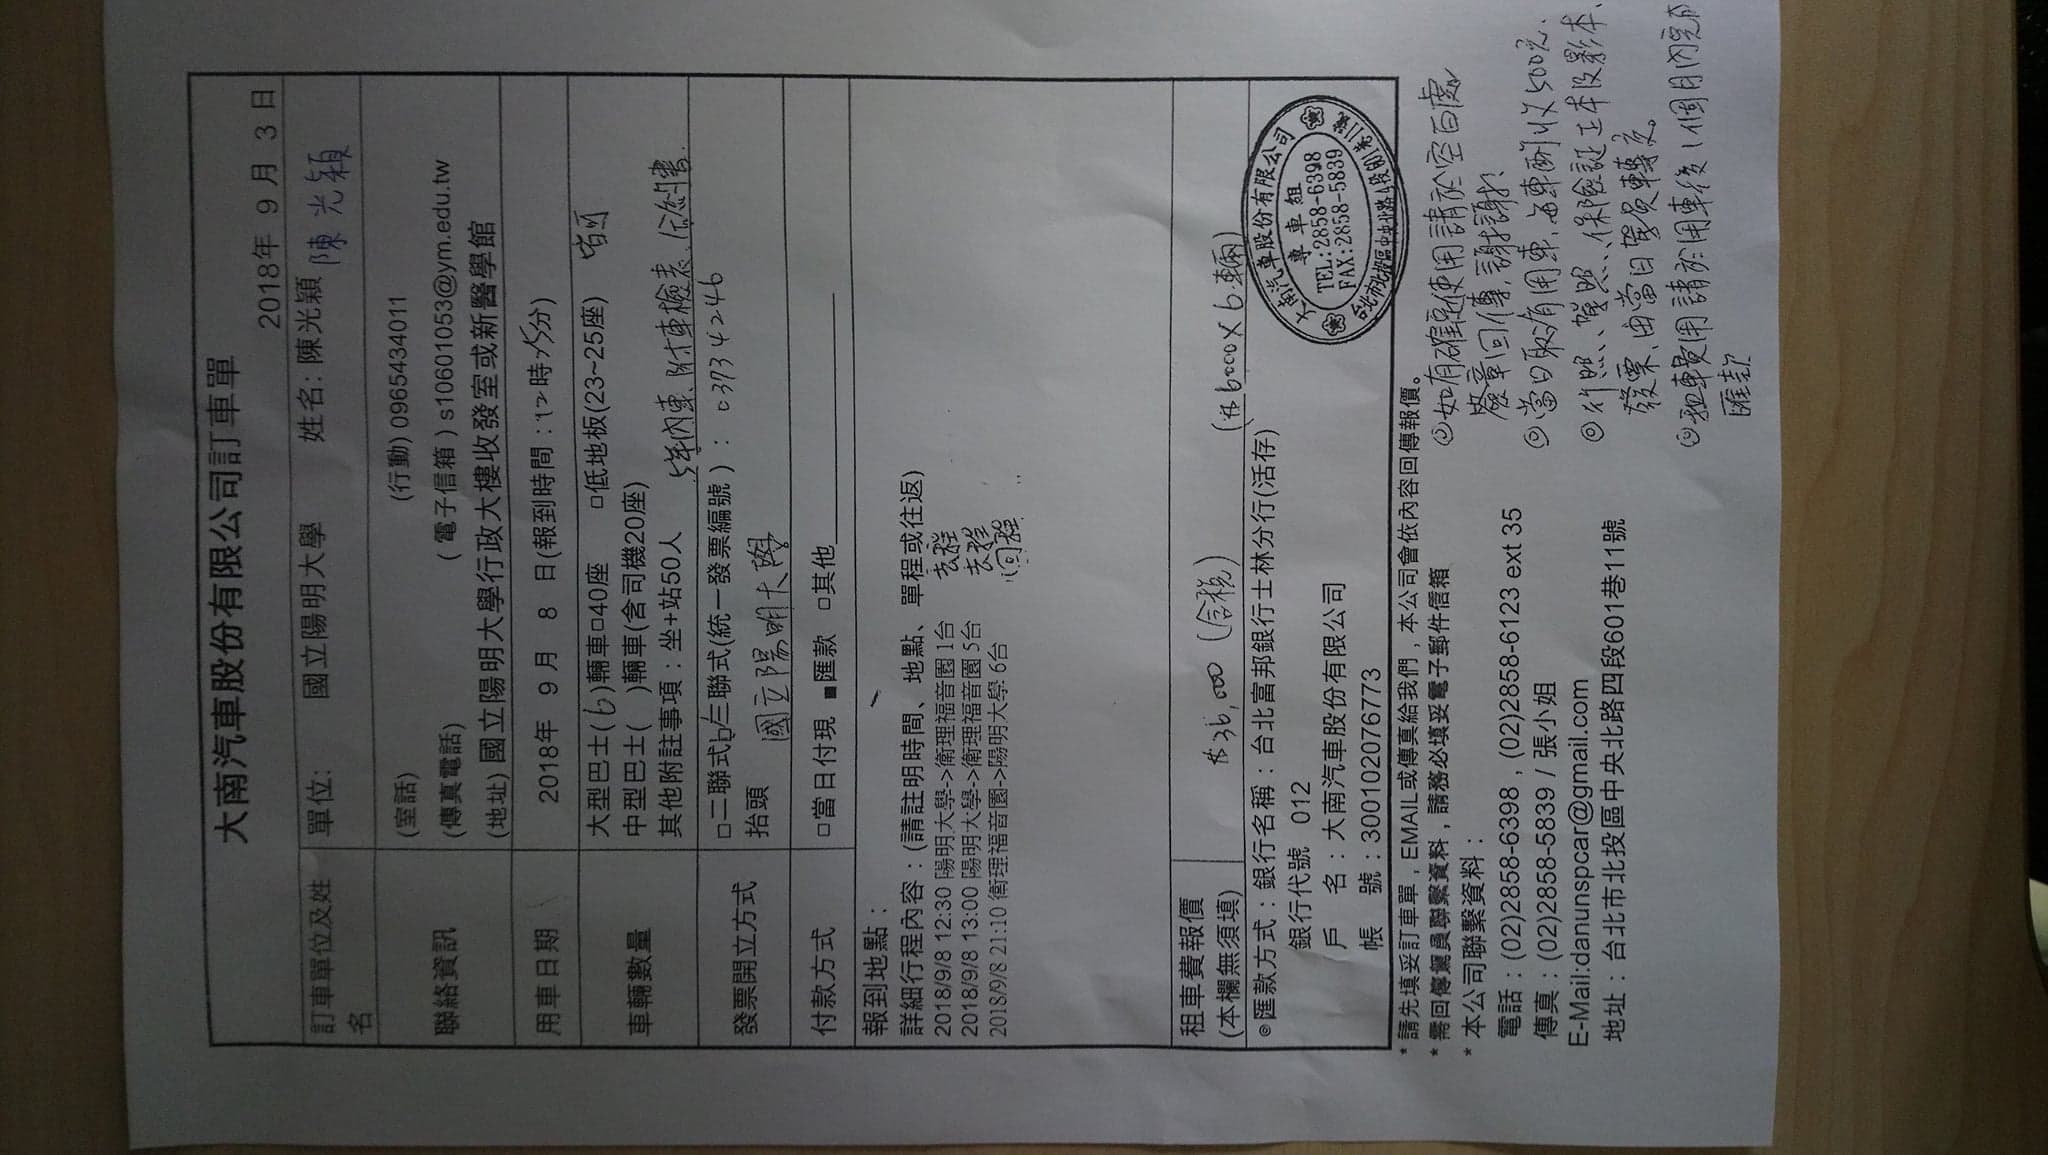 大南汽車股份有限公司訂車單
2018年 9 月 3 日
訂車單位及姓名
單位: 國立陽明大學 姓名: 陳光穎 陳光穎
聯絡資訊
(室話) (行動) 0965434011
(傳真電話) (電子信箱) s10601053@ym.edu.tw
(地址) 國立陽明大學行政大樓收發室或新醫學館
用車日期 2018年 9 月 8 日(報到時間:12時15分)
車輛數量
大型巴士(6)輛車□40座 □低地板(23~25座) 皆可
中型巴士( )輛車(含司機20座)
其他附註事項:坐+站50人 5年內車、附車檢表、合約書
發票開立方式
□二聯式☑三聯式(統一發票編號): 03734246
抬頭 國立陽明大學
付款方式 □當日付現 ■匯款 □其他
報到地點:
詳細行程內容:(請註明時間、地點、單程或往返)
2018/9/8 12:30 陽明大學->衛理福音園 1台 去程
2018/9/8 13:00 陽明大學->衛理福音園 5台 去程
2018/9/8 21:10 衛理福音園->陽明大學 6台 回程
租車費報價
(本欄無須填) $36,000 (含稅) ($6000X6輛)
◎匯款方式:銀行名稱:台北富邦銀行士林分行(活存)
銀行代號 012
戶 名:大南汽車股份有限公司
帳 號:300102076773
大南汽車股份有限公司
專車組
TEL:2858-6398
FAX:2858-5839
台北市北投區中央北路4段601巷11號
*請先填妥訂車單,EMAIL或傳真給我們,本公司會依內容回傳報價。
*需回傳駕員聯繫資料,請務必填妥電子郵件信箱
*本公司聯繫資料:
電話:(02)2858-6398,(02)2858-6123 ext 35
傳真:(02)2858-5839 / 張小姐
E-Mail:danunspcar@gmail.com
地址:台北市北投區中央北路四段601巷11號
◎如有確定使用請於空白處
簽章回傳,謝謝!
◎當日取消用車,每車酌收500元.
◎行照、駕照、保險證正本及影本、
發票,由當日駕員轉交
◎租車費用請於用車後1個月內完成
匯款